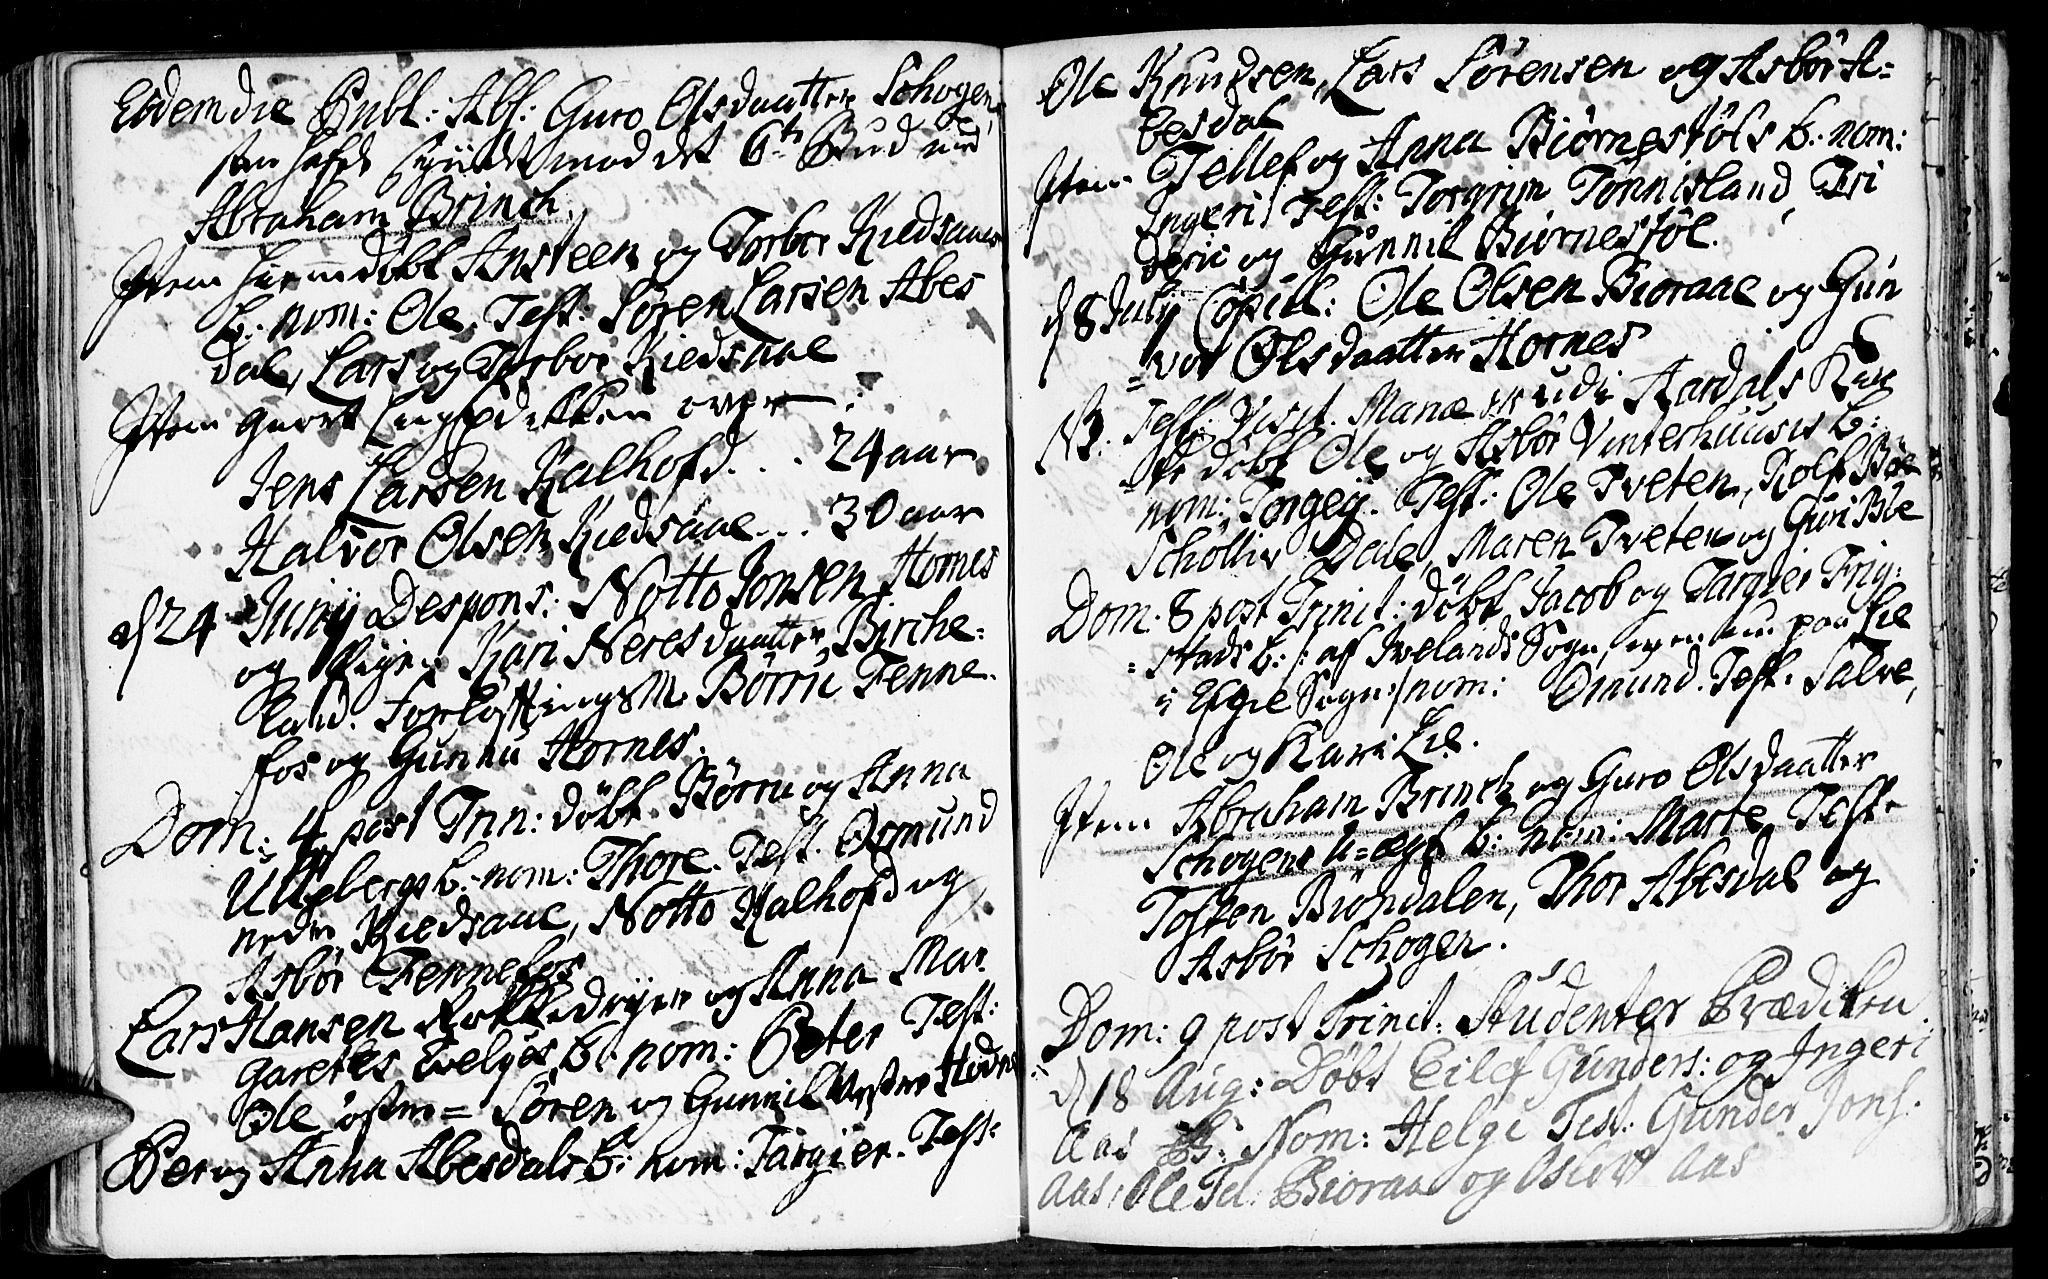 Eodem die Publ: Abs: Guro Olsdaatter Schogen,
som hafde syndet mod det 6te Bud med
Abraham Brinch.
Item hiemdøbt Ansteen og Torbor Kiedsaaes
b: nom: Ole. Test. Sören Larsen Abes
dal, Lars og Torbor Kiedsaae
Item giort Liigprædikken over :
Jens Larsen Kalhofd... 24 aar
Halvor Olsen Kiedsaae... 30 aar
d 24 Junij Despons: Notto Jonsen Hornes
og Pigen Kari Neresdaatter Birche=
land. ForlofningsM. Börru Fenne.
fos og Gunnu Hornes.
Dom: 4 post Trin: döbt Börru og Anna
Ullebergs b: nom: Thore. Test. Osmund
nedre Kiedsaae, Notto Kalhofd og
Asbör Fennefos
Lars Hansen og Anna Mar
garetes b: nom: Peter Test:
Ole östre= Sören og Gunnil Vestre
Per og Anna Abesdals b: nom: Targier. Test:
Ole Knudsen, Lars Sörensen og Asbör A=
besdal
Item Tellef og Anna Biörnestöls b: nom:
Ingeri Test: Torgrim Tonnisland, Fri
deric og Gunnil Biörnestöl.
d 8 July Copul: Ole Olsen Bioraae og Gun
=vor Olsdaatter Hornes
NB. Test. Visit. Mariæ er udi Aardals Kir
=ke döbt Ole og Asbör Vinterhuuses b:
nom: Torgey. Test: Ole Tveten, Rolf Böe
Schöllis Dale, Maren Tveten og Guri Böe
Dom. 8 post Trinit: döbt Jacob og Targier Frig=
=stads b: /: af Ivelands Sogn, men nu paa Lie
i Egie Sogn :/ nom: Omund. Test. Salve,
Ole og Kari Lie.
Item Abraham Brinch og Guro Olsdaatter
Schogens u=ægt b: nom: Marte Test.
Tosten Biöndalen, Thor Abesdal og
Asbör Schogen.
Dom: 9 post Trinit: Studenter Prædiken
d 18 Aug: Döbt Eilef Gunders: og Ingeri
Aas B: Nom: Helge Test: Gunder Jons:
Aas, Ole Bioraae og Aas